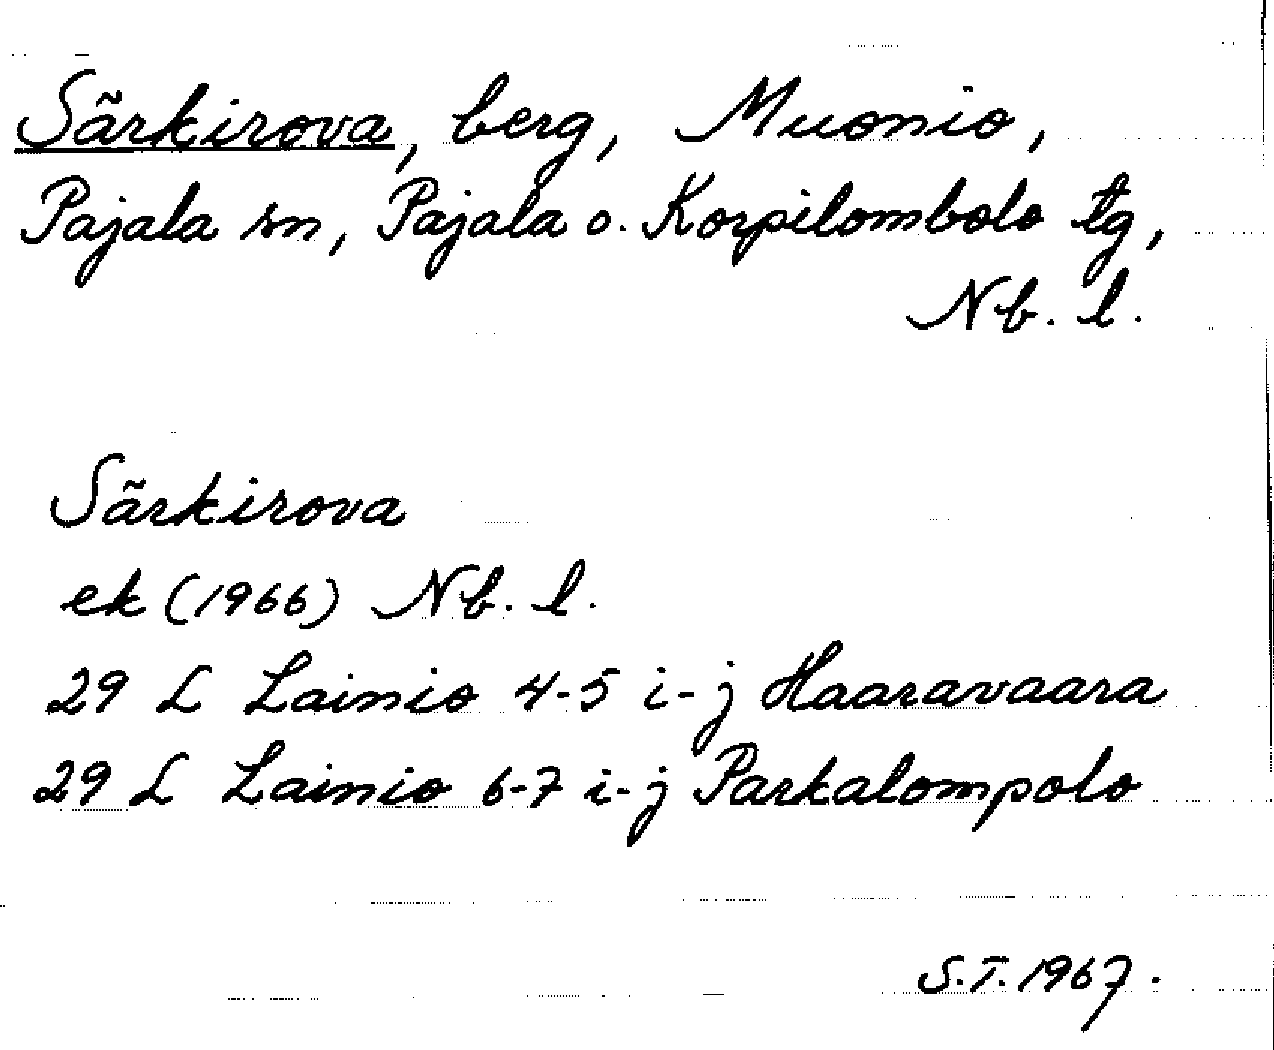 Särkirova, berg, Muonio,
Pajala sn, Pajala o. Korpilombolo tg,
Nb. l.
Särkirova
ek (1966) Nb. l.
29 L Lainio 4-5 i-j Haaravaara
29 L Lainio 6-7 i-j Parkalompolo
S.T. 1967.